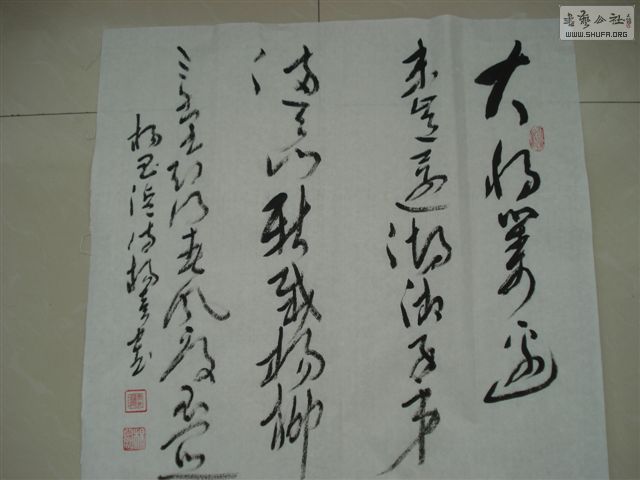 书艺公社
WWW.SHUFA.ORG
大将筹边
未肯还湖湘子弟
满天山新栽杨柳
三千里引得春风度玉关
杨昌浚诗杨书